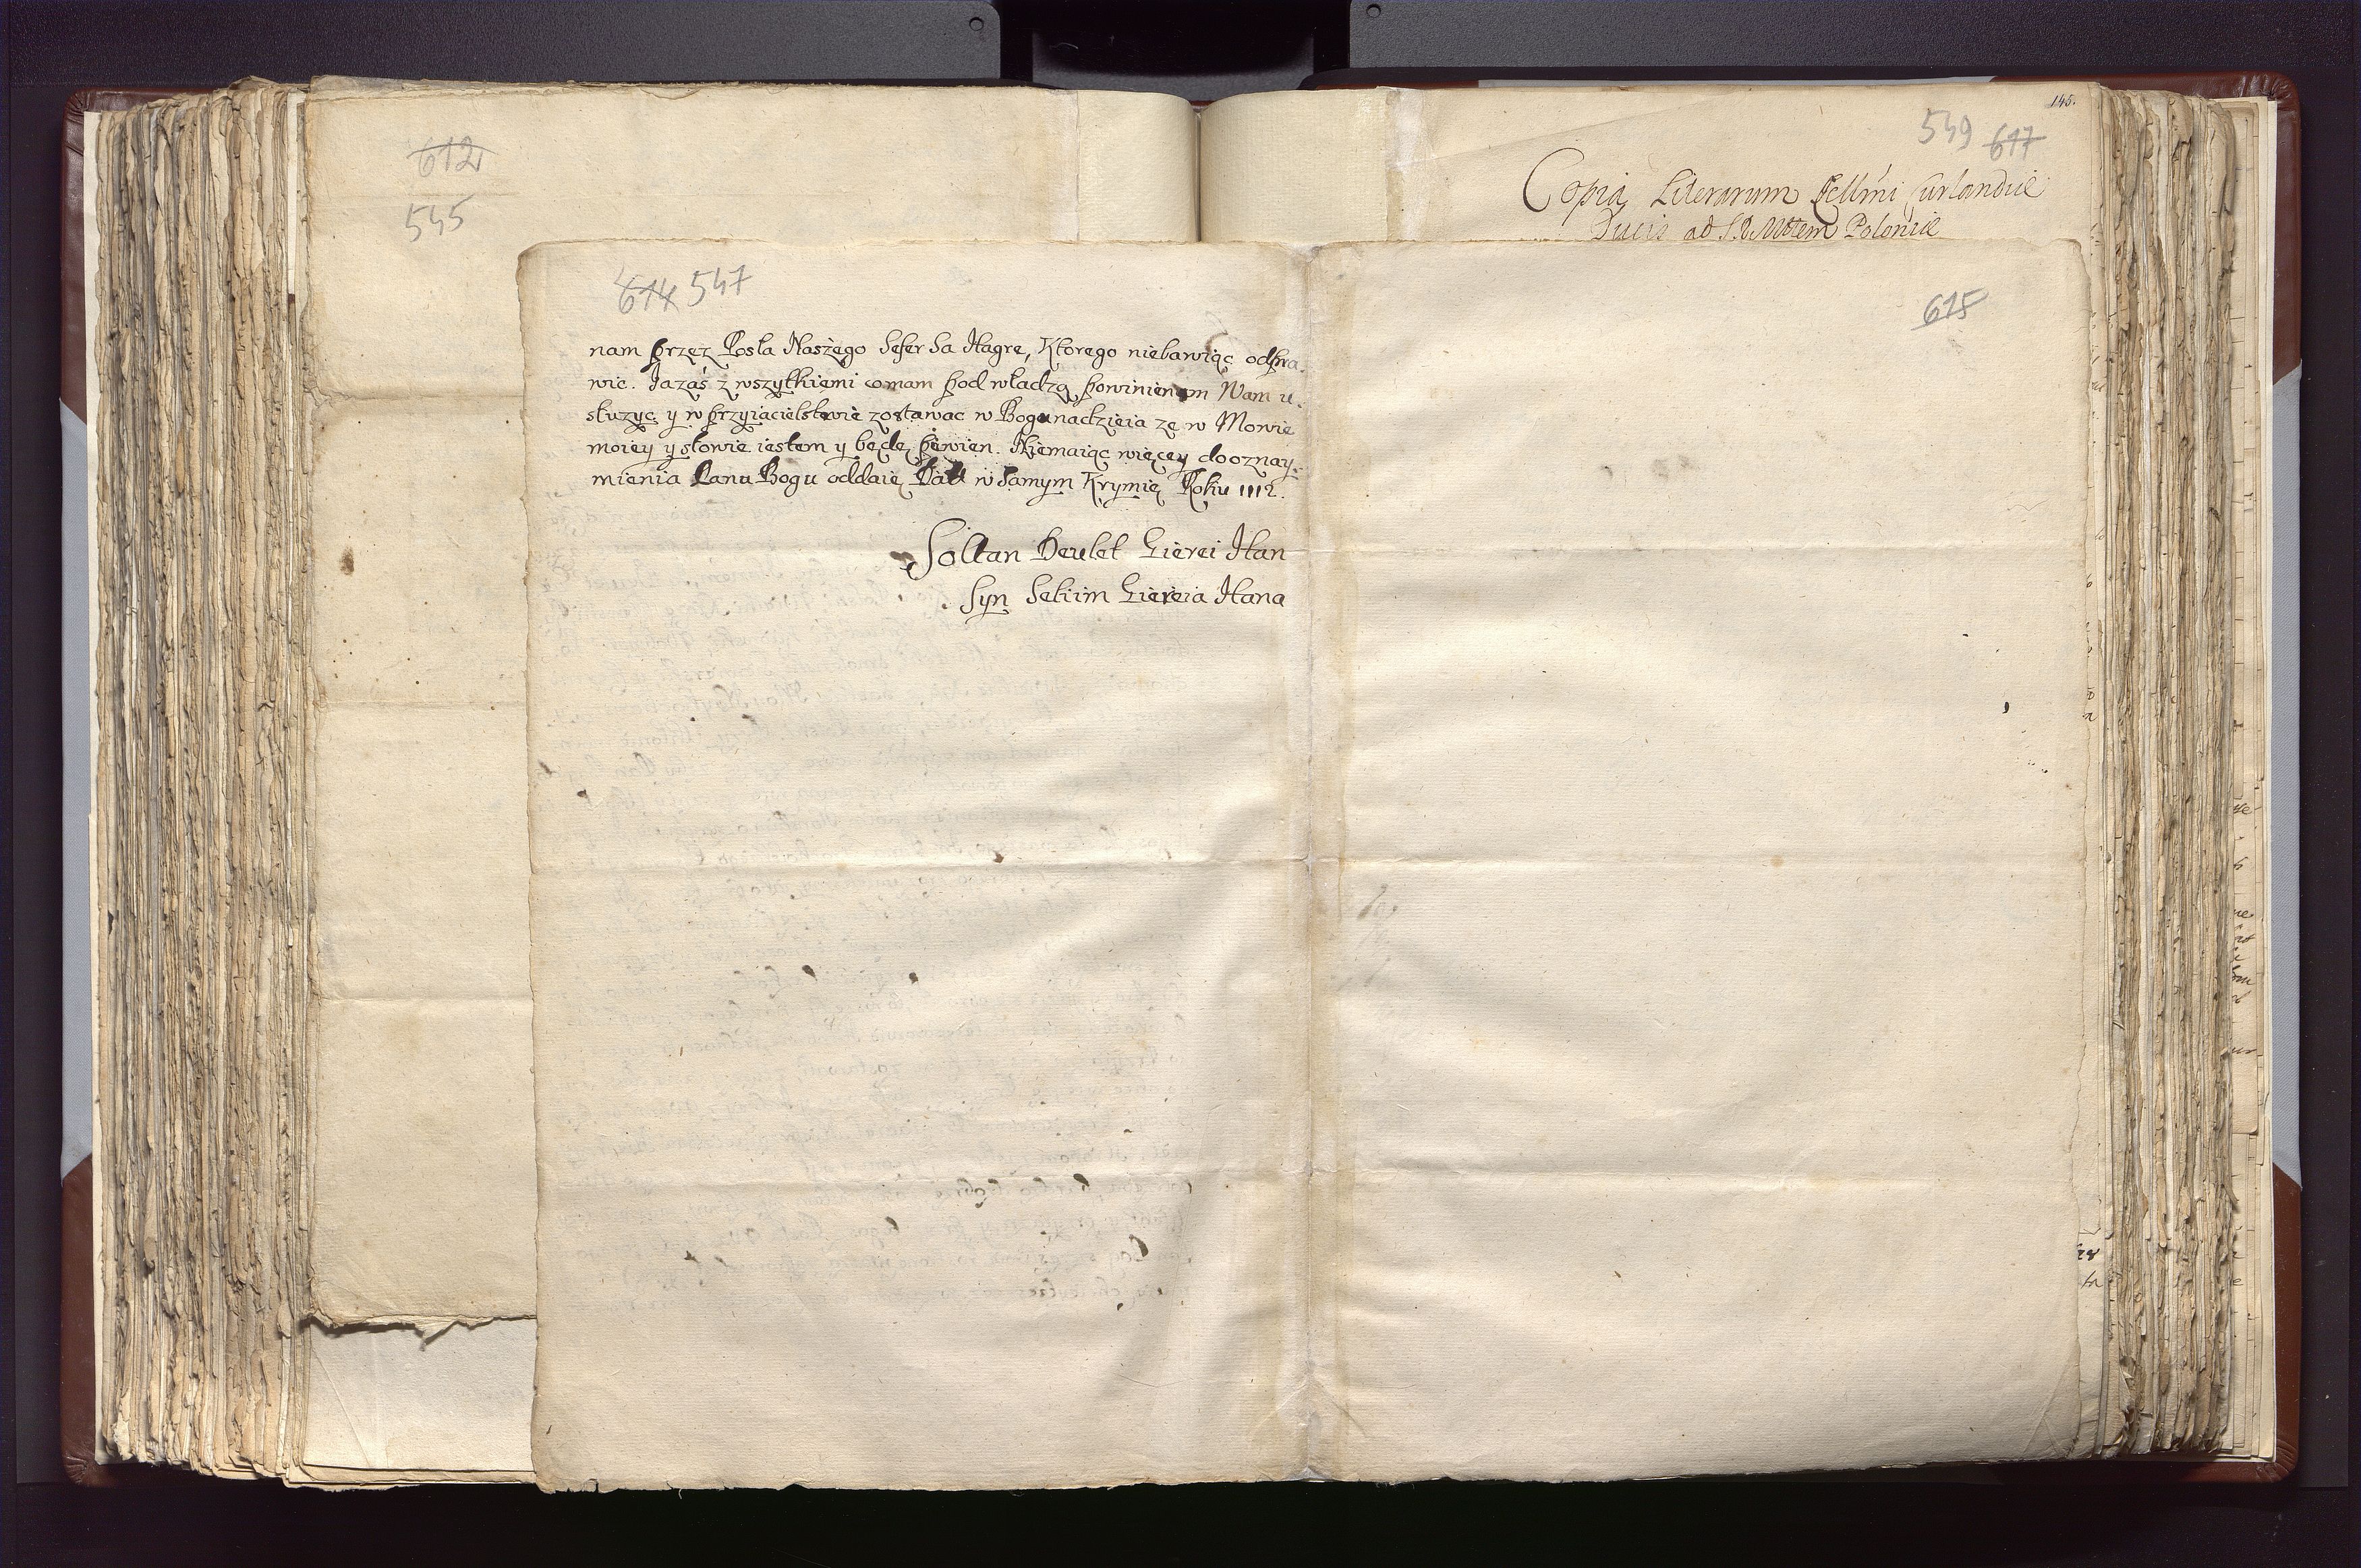 612
545
145.
549 617
Copia Literarum Cellmi Curlandiæ
Ducis ad S.R.Mttem Poloniæ
614 547
615
nam przez Posła Naszego Sefer Sa Hagre, Ktorego niebawiąc odpra-
wic. Jazaś z wszytkiemi co mam pod władzą powinienem Wam u-
służyc y w przyiacielstwie zostawac w Bogu nadzieia ze w Mowie
moiey y słowie iestem y będę pewien. Niemaiąc więcey do oznay-
mienia Panu Bogu oddaię Datt w Samym Krymię Roku 1112.
Soltan Deulet Gierei Han
Syn Selim Giereia Hana